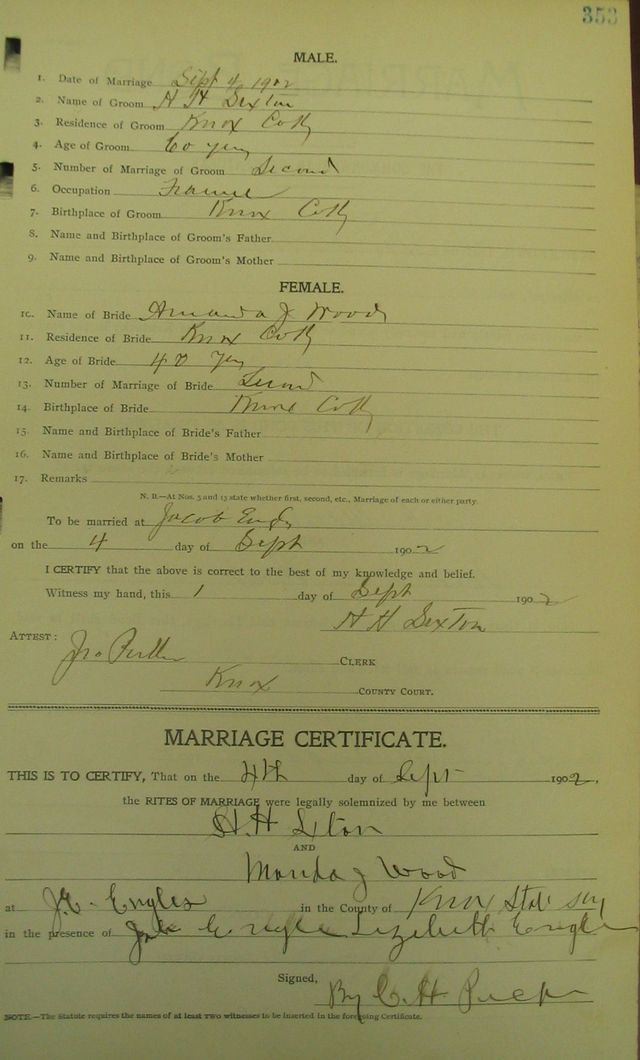 353
MALE.
1. Date of Marriage Sept 4 1902
2. Name of Groom H H Sexton
3. Residence of Groom Knox Co Ky
4. Age of Groom 60 yrs
5. Number of Marriage of Groom Second
6. Occupation Farmer
7. Birthplace of Groom Knox Co Ky
8. Name and Birthplace of Groom's Father
9. Name and Birthplace of Groom's Mother
FEMALE.
10. Name of Bride Amanda J Wood
11. Residence of Bride Knox Co Ky
12. Age of Bride 40 yrs
13. Number of Marriage of Bride Second
14. Birthplace of Bride Knox Co Ky
15. Name and Birthplace of Bride's Father
16. Name and Birthplace of Bride's Mother
17. Remarks
N. B.—At Nos. 5 and 13 state whether first, second, etc., Marriage of each or either party.
To be married at Jacob
on the 4 day of Sept 1902
I CERTIFY that the above is correct to the best of my knowledge and belief.
Witness my hand, this 1 day of Sept 1902
H H Sexton
ATTEST: Jno CLERK
Knox COUNTY COURT.
MARRIAGE CERTIFICATE.
THIS IS TO CERTIFY, That on the 4th day of Sept 1902,
the RITES OF MARRIAGE were legally solemnized by me between
H. H
AND
Manda J Wood
at J.E. Engles in the County of Knox State
in the presence of Engle Lizebeth Engle
Signed,
By C. H
NOTE.—The Statute requires the names of at least two witnesses to be inserted in the foregoing Certificate.